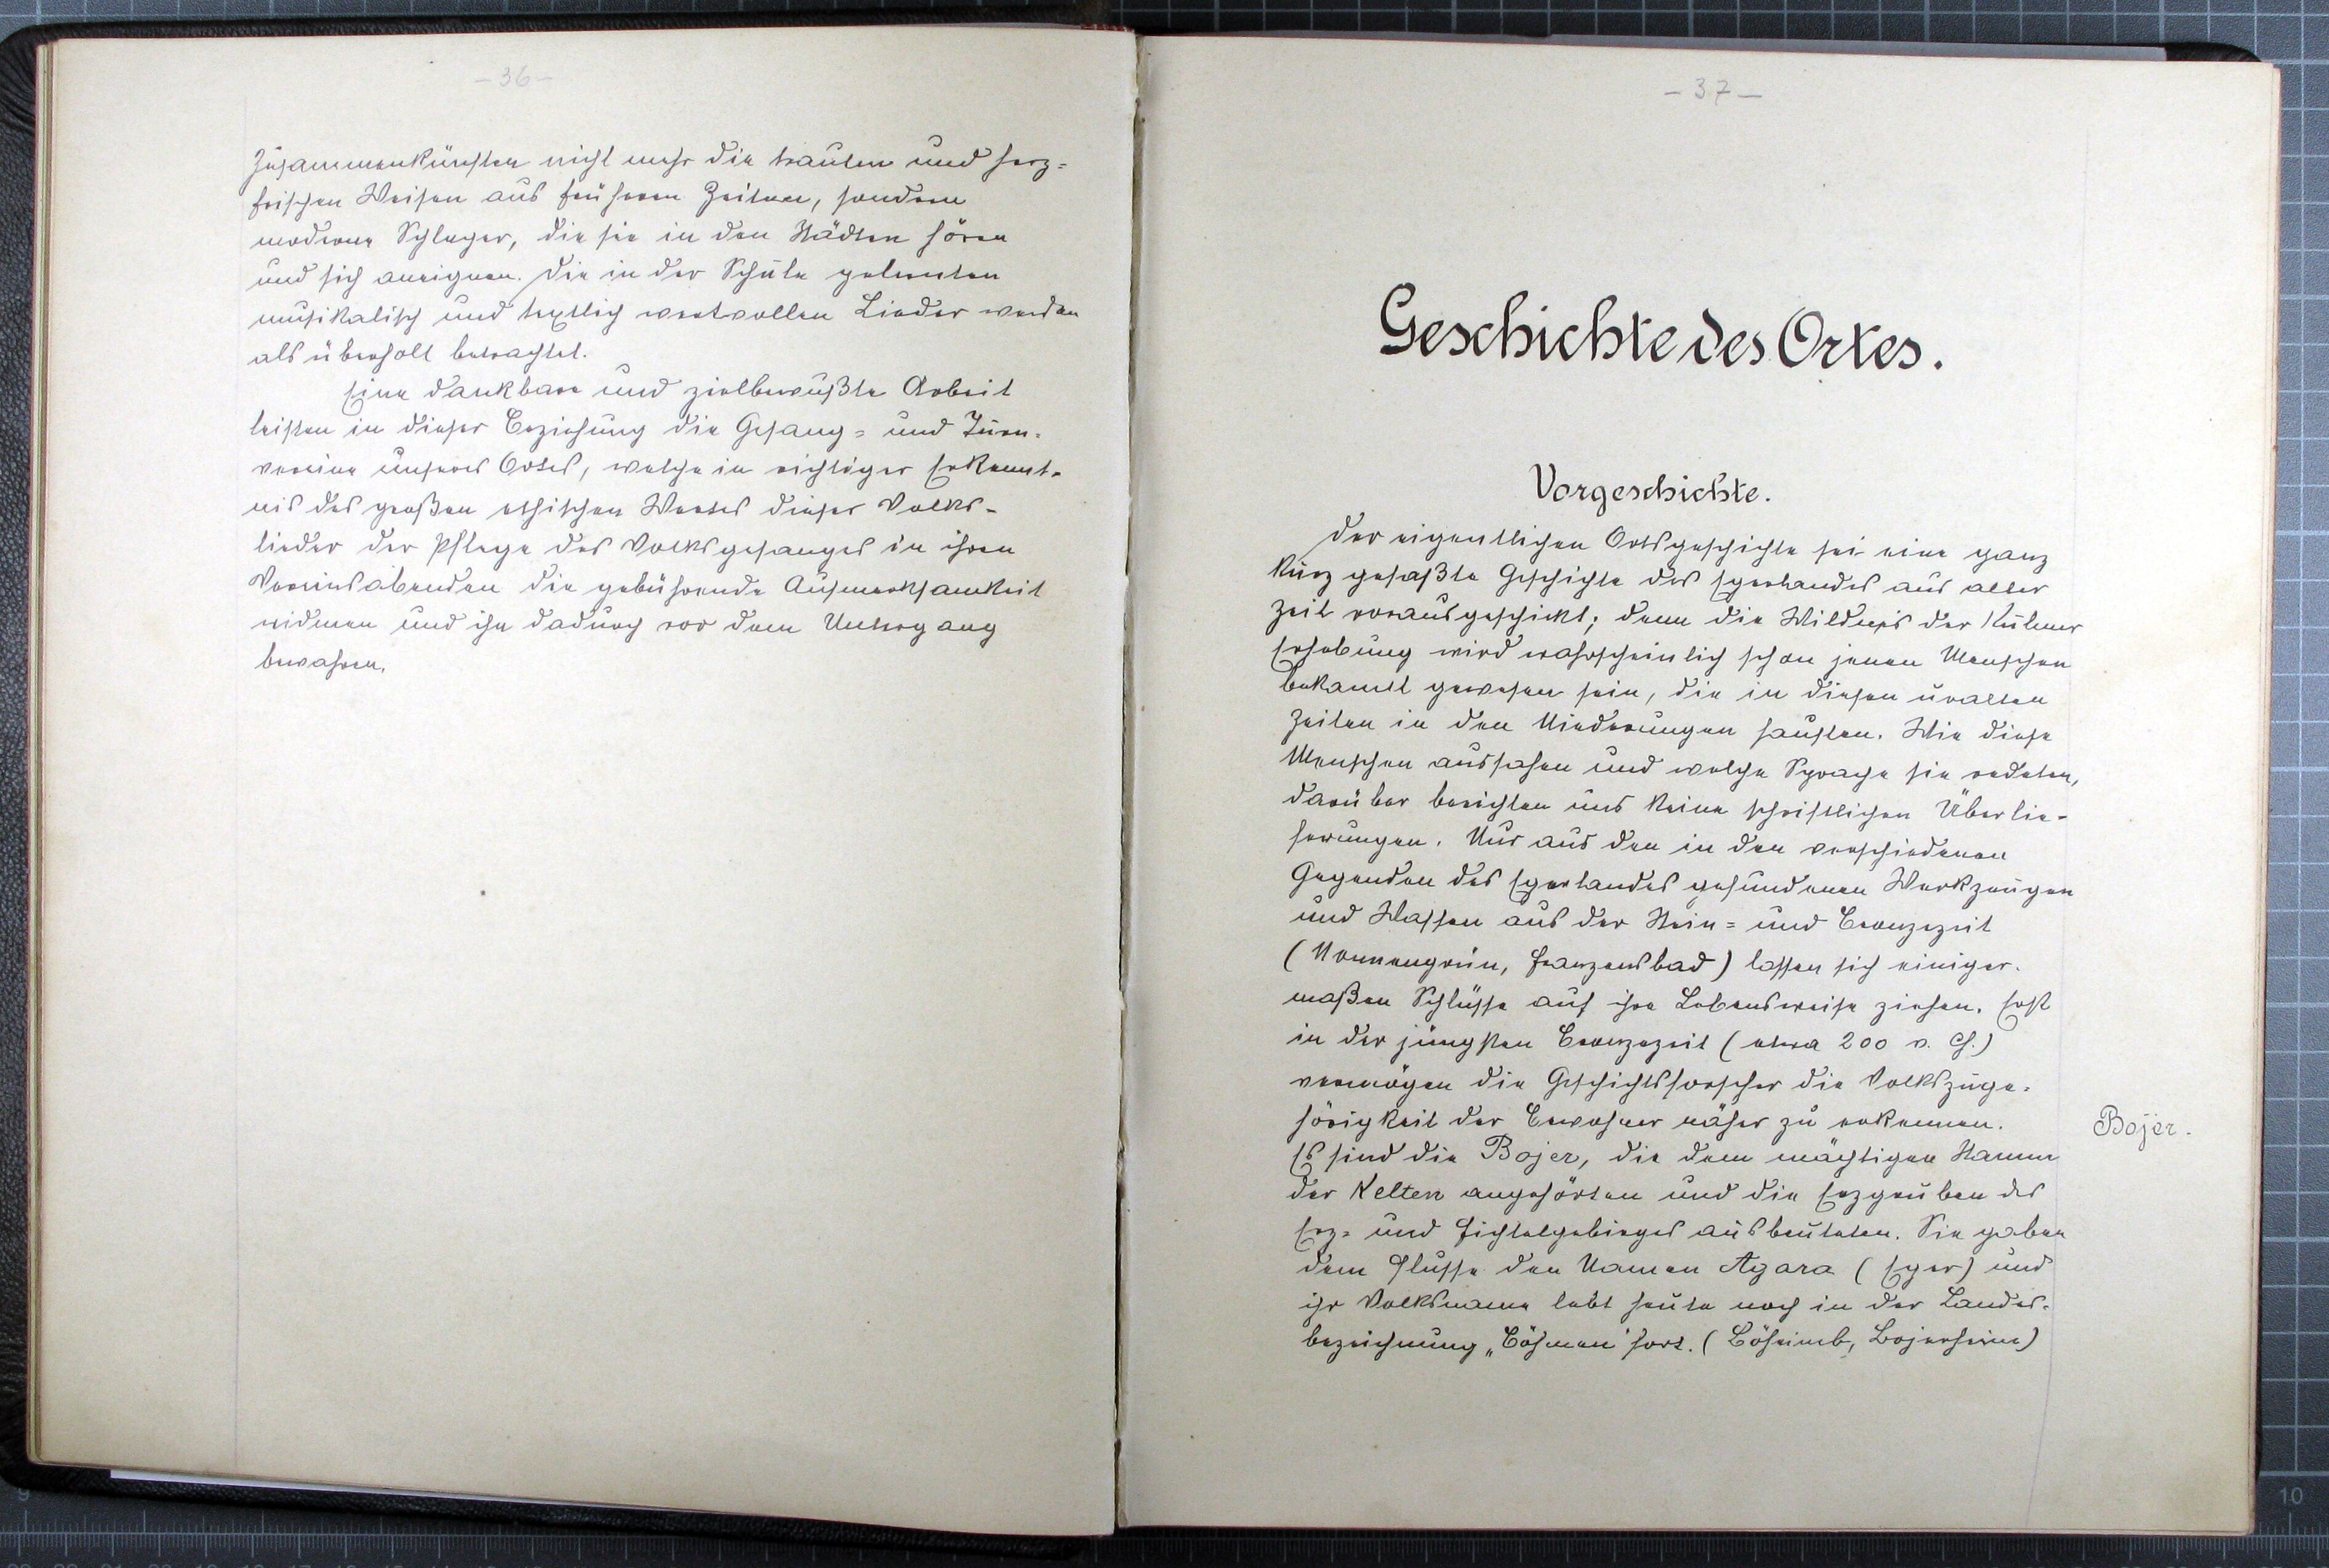 - 36 -
Zusammenkünften nicht mehr die trauten und herz-
frischen Weisen aus früheren Zeiten, sondern
moderne Schlager, die sie in den Städten hören
und sich aneignen. Die in der Schule gelernten
musikalisch und textlich wertvollen Lieder werden
als überholt betrachtet.
Eine dankbare und zielbewußte Arbeit
leisten in dieser Beziehung die Gesang- und Turn-
vereine unseres Ortes, welche in richtiger Erkennt-
nis des großen ethischen Wertes dieser Volks-
lieder der Pflege des Volksgesanges in ihren
Vereinsabenden die gebührende Aufmerksamkeit
widmen und ihn dadurch vor dem Untergang
bewahren.
- 37 -
Geschichte des Ortes.
Vorgeschichte.
Der eigentlichen Ortsgeschichte sei eine ganz
kurz gefaßte Geschichte des Egerlandes aus alter
Zeit vorausgeschickt; denn die Wildnis der Kulmer
Erhebung wird wahrscheinlich schon jenen Menschen
bekannt gewesen sein, die in diesen uralten
Zeiten in den Niederungen hausten. Wie diese
Menschen aussahen und welche Sprache sie redeten,
darüber berichten uns keine schriftlichen Überlie-
ferungen. Nur aus den in den verschiedenen
Gegenden des Egerlandes gefundenen Werkzeugen
und Waffen aus der Stein- und Bronzezeit
(Nonnengrün, Franzensbad) lassen sich einiger-
maßen Schlüsse auf ihre Lebensweise ziehen. Erst
in der jüngsten Bronzezeit (etwa 200 v. Ch.)
vermögen die Geschichtsforscher die Volkszuge-
hörigkeit der Bewohner näher zu erkennen.
Es sind die Bojer, die dem mächtigen Stamm
der Kelten angehörten und die Erzgruben des
Erz- und Fichtelgebirges ausbeuteten. Sie gaben
dem Flusse den Namen Agara (Eger) und
ihr Volksname lebt heute noch in der Landes-
bezeichnung „Böhmen" fort. (Böheimb, Bojerheim)
Bojer.